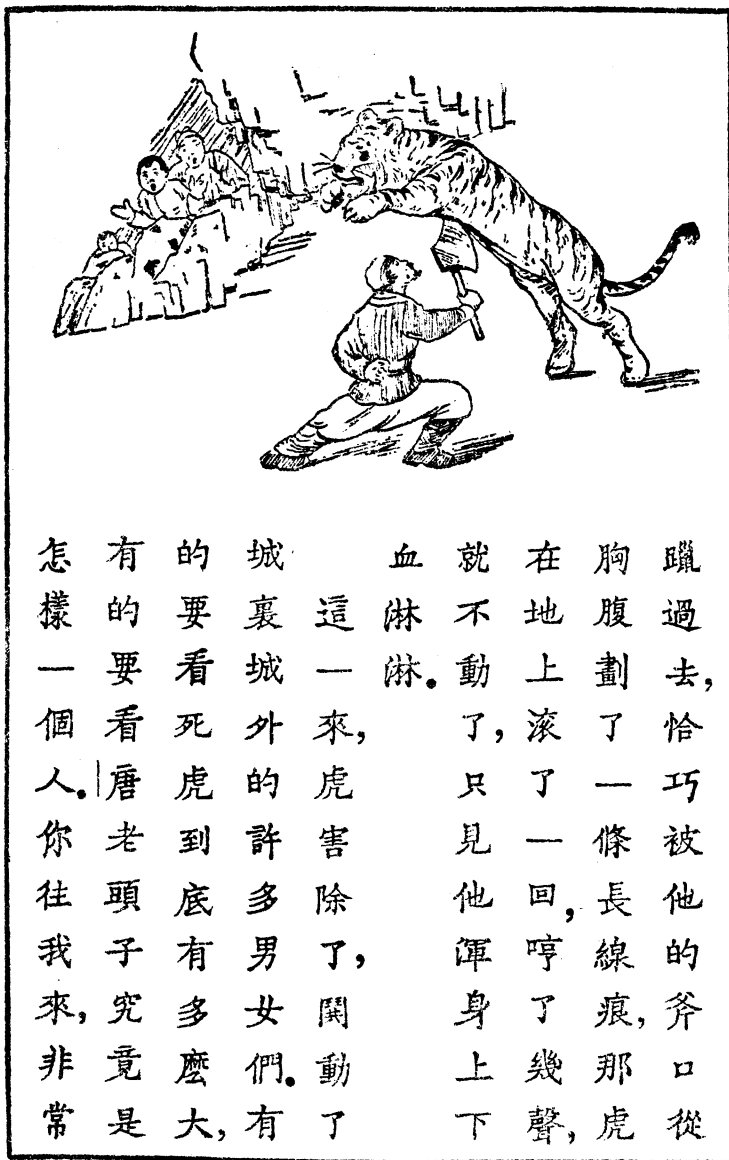 躐過去，恰巧被他的斧口從
胸腹劃了一條長線痕，那虎
在地上滚了一回，哼了幾聲，
就不動了，只見他渾身上下
血淋淋。
這一來，虎害除了，鬨動了
城裏城外的許多男女們。有
的要看死虎到底有多麽大，
有的要看唐老頭子究竟是
怎樣一個人。你往我來，非常